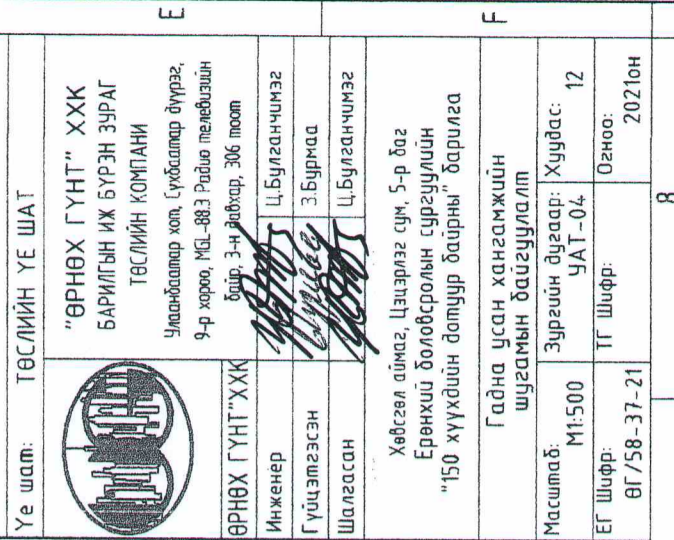 Үе шат: ТӨСЛИЙН ҮЕ ШАТ
"ӨРНӨХ ГҮНТ" ХХК
БАРИЛГЫН ИЖ БҮРЭН ЗУРАГ
ТӨСЛИЙН КОМПАНИ
Улаанбаатар хот, Сүхбаатар дүүрэг,
9-р хороо, MGL-88.3 Радио телевизийн
байр, 3-н давхар, 306 тоот
ӨРНӨХ ГҮНТ"ХХК
Инженер Ц.Булганчимэг
Гүйцэтгэсэн З.Бурмаа
Шалгасан Ц.Булганчимэг
Хөвсгөл аймаг, Цэцэрлэг сум, 5-р баг
Ерөнхий боловсролын сургуулийн
"150 хүүхдийн дотуур байрны" барилга
Гадна усан хангамжийн
шугамын байгуулалт
Масштаб: М1:500
Зургийн дугаар: УАТ-04
Хуудас: 12
ЕГ Шифр: ӨГ/58-37-21
ТГ Шифр:
Огноо: 2021он
E
F
8